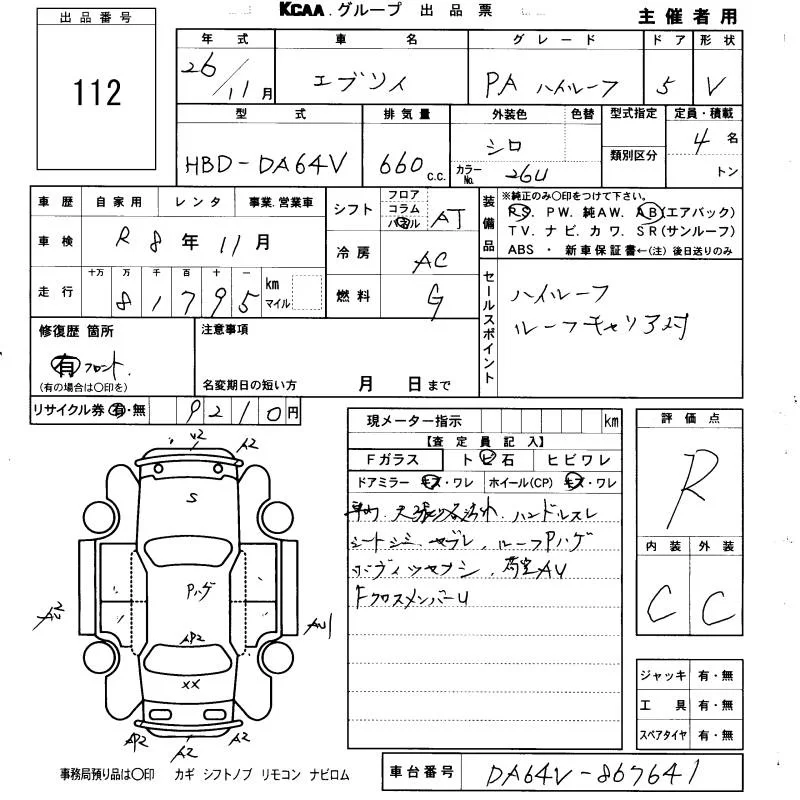 KCAA.グループ 出品票
主催者用
出品番号
112
年式 車名 グレード ドア 形状
26/11月 エブリイ PA ハイルーフ 5 V
型式 排気量 外装色 色替 型式指定 定員・積載
HBD-DA64V 660 c.c. シロ 類別区分 4名
カラーNo. 26U トン
車歴 自家用 レンタ 事業.営業車
車検 R8年11月
走行 十万 万 千 百 十 一
81795 km マイル
シフト フロア コラム パネル AT
冷房 AC
燃料 G
装備品 ※純正のみ〇印をつけて下さい。
PS. PW. 純AW. AB(エアバック)
TV. ナビ. カワ. SR(サンルーフ)
ABS ・ 新車保証書←(注)後日送りのみ
セールスポイント
ハイルーフ
ルーフキャリア付
修復歴 箇所
有 フロント.
(有の場合は〇印を)
注意事項
名変期日の短い方 月 日まで
リサイクル券 有・無 9210円
現メーター指示 km
【査定員記入】
Fガラス トビ石 ヒビワレ
ドアミラー キズ・ワレ ホイール(CP) キズ・ワレ
ハンドルスレ
ルーフPハゲ
荷室AU
FクロスメンバーU
評価点
R
内装 外装
C C
V2
A2
S
Pハゲ
AU2
AU1
AP2
XX
AP2
A2
A2
ジャッキ 有・無
工具 有・無
スペアタイヤ 有・無
事務局預り品は〇印 カギ シフトノブ リモコン ナビロム
車台番号 DA64V-867641